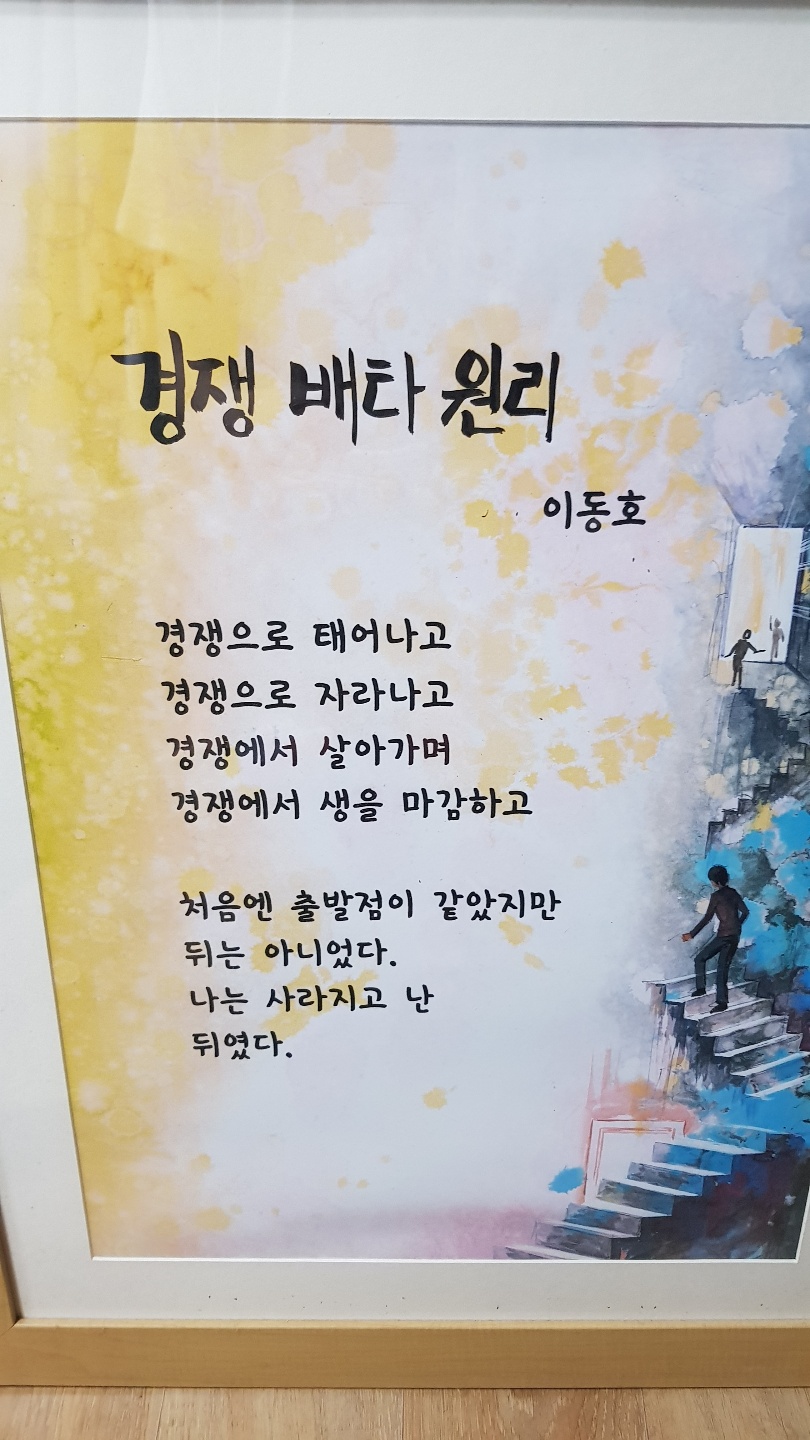 경쟁 배타 원리
이동호
경쟁으로 태어나고
경쟁으로 자라나고
경쟁에서 살아가며
경쟁에서 생을 마감하고
처음엔 출발점이 같았지만
뒤는 아니었다.
나는 사라지고 난
뒤였다.